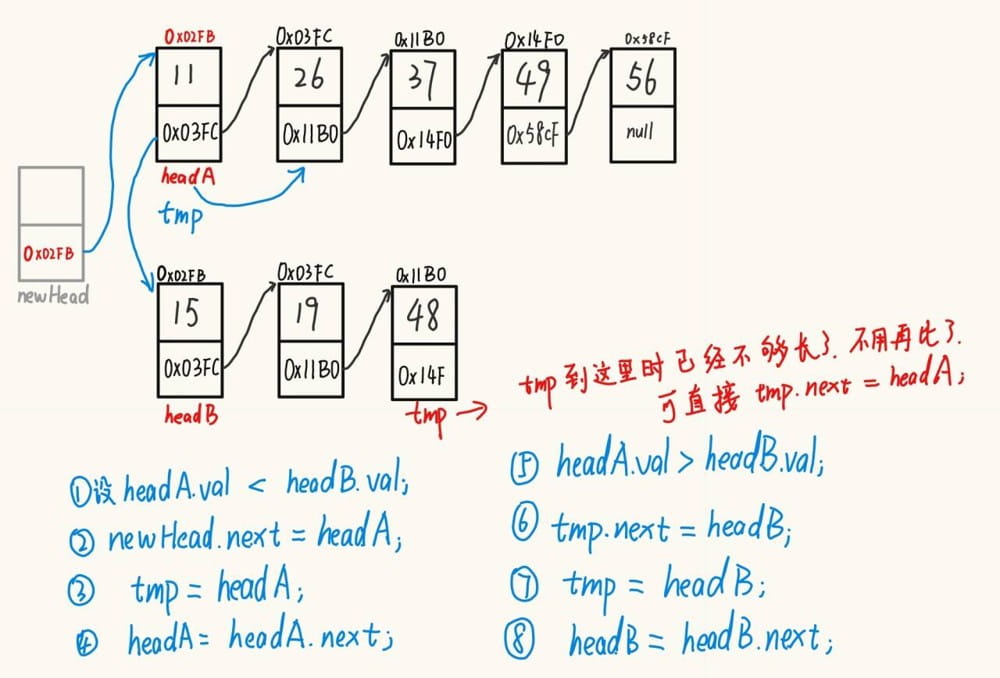 0x02FB 0x03FC 0x11B0 0x14F0 0x58CF
11 26 37 49 56
0x03FC 0x11B0 0x14F0 0x58CF null
headA
tmp
0x02FB
newHead
0x02FB 0x03FC 0x11B0
15 19 48
0x03FC 0x11B0 0x14F
headB
tmp → tmp到这里时已经不够长了.不用再比了.
可直接 tmp.next = headA;
①设 headA.val < headB.val;
② newHead.next = headA;
③ tmp = headA;
④ headA = headA.next;
⑤ headA.val > headB.val;
⑥ tmp.next = headB;
⑦ tmp = headB;
⑧ headB = headB.next;